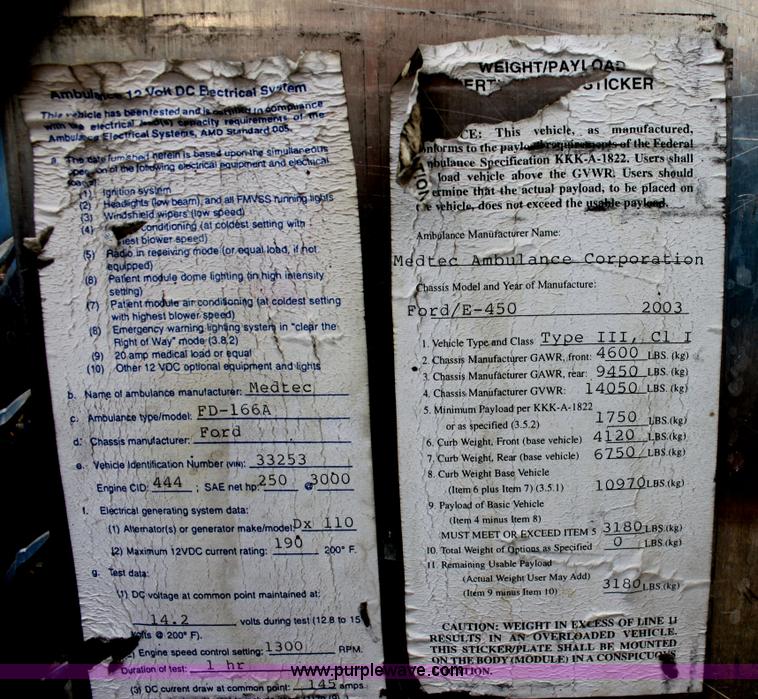 Ambulance 12 Volt DC Electrical System
This vehicle has been tested and is certified in compliance
with the electrical capacity requirements of the
Ambulance Electrical Systems, AMD Standard 005.
a. The data furnished herein is based upon the simultaneous
of the following electrical equipment and electrical
(1) Ignition system
(2) Headlights (low beam), and all FMVSS running lights
(3) Windshield wipers (low speed)
(4) conditioning (at coldest setting with
blower speed)
(5) Radio in receiving mode (or equal load, if not
equipped)
(6) Patient module dome lighting (in high intensity
setting)
(7) Patient module air conditioning (at coldest setting
with highest blower speed)
(8) Emergency warning lighting system in "clear the
Right of Way" mode (3.8.2)
(9) 20 amp medical load or equal
(10) Other 12 VDC optional equipment and lights
b. Name of ambulance manufacturer: Medtec
c. Ambulance type/model: FD-166A
d. Chassis manufacturer: Ford
e. Vehicle Identification Number (VIN): 33253
Engine CID: 444 ; SAE net hp: 250 @ 3000
f. Electrical generating system data:
(1) Alternator(s) or generator make/model: Dx 110
(2) Maximum 12VDC current rating: 190 200° F.
g. Test data:
(1) DC voltage at common point maintained at:
14.2 volts during test (12.8 to 15
volts @ 200° F).
Engine speed control setting: 1300 RPM.
Duration of test: 1 hr
(3) DC current draw at common point: 145 amps
WEIGHT/PAYLOAD
STICKER
This vehicle, as manufactured,
to the payload requirements of the Federal
Specification KKK-A-1822. Users shall
load vehicle above the GVWR. Users should
that the actual payload, to be placed on
vehicle, does not exceed the usable payload.
Ambulance Manufacturer Name:
Medtec Ambulance Corporation
Chassis Model and Year of Manufacture:
Ford/E-450 2003
1. Vehicle Type and Class Type III, Cl I
2. Chassis Manufacturer GAWR, front: 4600 LBS. (kg)
3. Chassis Manufacturer GAWR, rear: 9450 LBS. (kg)
4. Chassis Manufacturer GVWR: 14050 LBS. (kg)
5. Minimum Payload per KKK-A-1822
or as specified (3.5.2) 1750 LBS.(kg)
6. Curb Weight, Front (base vehicle) 4120 LBS.(kg)
7. Curb Weight, Rear (base vehicle) 6750 LBS.(kg)
8. Curb Weight Base Vehicle
(Item 6 plus Item 7) (3.5.1) 10970 LBS.(kg)
9. Payload of Basic Vehicle
(Item 4 minus Item 8)
MUST MEET OR EXCEED ITEM 5 3180 LBS.(kg)
10. Total Weight of Options as Specified 0 LBS.(kg)
11. Remaining Usable Payload
(Actual Weight User May Add)
(Item 9 minus Item 10) 3180 LBS.(kg)
CAUTION: WEIGHT IN EXCESS OF LINE 11
RESULTS IN AN OVERLOADED VEHICLE.
THIS STICKER/PLATE SHALL BE MOUNTED
ON THE BODY (MODULE) IN A CONSPICUOUS
www.purplewave.com